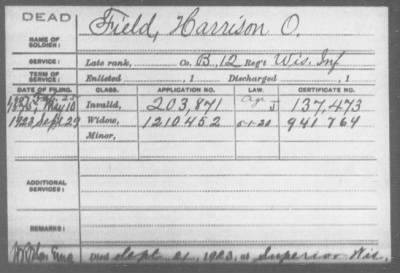 DEAD
NAME OF SOLDIER: Field, Harrison O.
SERVICE: Late rank, Co. B, 12 Reg't Wis. Inf
TERM OF SERVICE: Enlisted , 1 Discharged , 1
DATE OF FILING. CLASS. APPLICATION NO. LAW. CERTIFICATE NO.
May 10 Invalid, 203,871 J 137,473
1923, Sept. 29 Widow, 1210452 5-1-20 941764
Minor,
ADDITIONAL SERVICES:
REMARKS:
Died Sept 21, 1923, at Superior Wis.